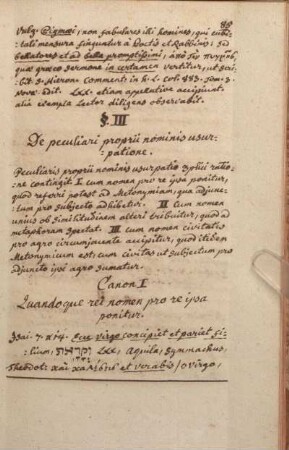 89
Vulg: Pigmæi, non fabulares illi homines, qui cubi-
tali mensura finguntur à Poetis et Rabbinis, sed
bellatores et ad bella promptissimi, ἀπὸ τῆς πυγμῆς,
quæ græco sermone in certamen vertitur, ut scri-
bit S. Hieron. Comment: in h. l. col 483. tom: 3.
nove. edit. LXX. etiam appellative accipiunt.
alia exempla Lector diligens observabit.
§. III
De peculiari proprii nominis usur-
patione.
Peculiaris proprii nominis usurpatio triplici ratio-
ne contingit I cum nomen pro re ipsa ponitur,
quod referri potest ad Metonymiam, qua adjunc-
tum pro subjecto adhibetur. II cum nomen
unius ob similitudinem alteri tribuitur, quod ad
metaphoram spectat. III cum nomen civitatis
pro agro circumjacente accipitur, quod itidem
Metonymicum est; cum civitas ut subjectum pro
adjuncto ipsi agro sumatur.
Canon I
Quandoque rei nomen pro re ipsa
ponitur.
Isai. 7. v 14. Ecce virgo concipiet et pariet fi-
lium, וקראת LXX, Aquila, Symmachus,
Theodot: καὶ καλέσεις et vocabis / o virgo,